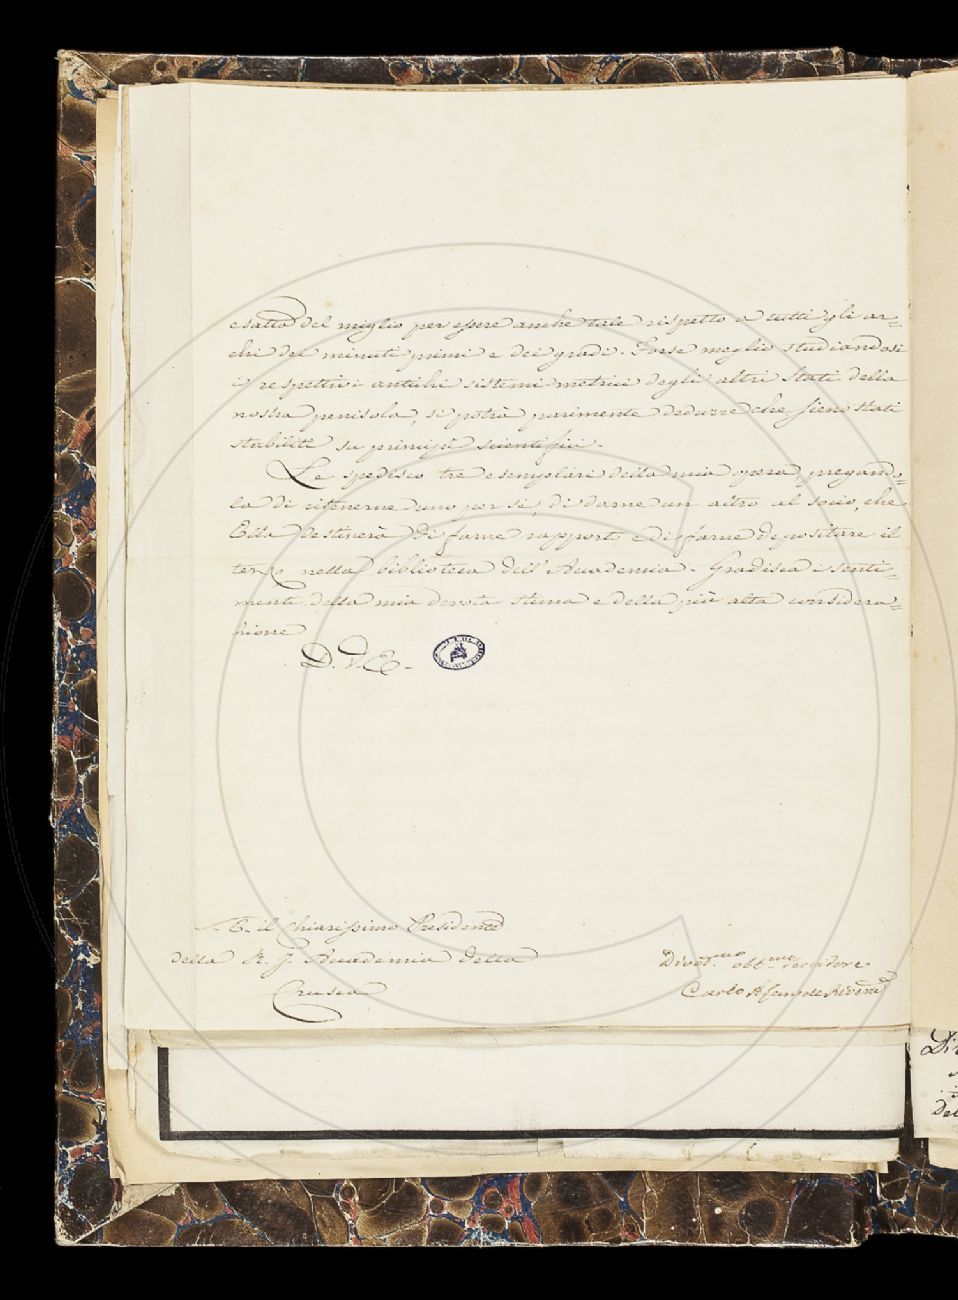 esatta del miglio per essere anche tale rispetto a tutti gli ar=
chi dei minuti primi e dei gradi. Forse meglio studiandosi
i respettivi antichi sistemi metrici degli altri Stati della
nostra penisola, si potrà parimente dedurre che sieno stati
stabiliti su principi scientifici.
Le spedisco tre esemplari della mia opera, pregando=
la di ritenerne uno per se, di darne un altro al socio, che
Ella destinerà di farne rapporto e di farne depositare il
terzo nella biblioteca dell'Accademia. Gradisca i senti=
menti della mia devota stima e della più alta considera=
zione
D. V. E.
S. E. il Chiarissimo Presidente
della R. J. Accademia della
Crusca
Divot.mo obb.mo servidore
Carlo Afan de Rivera
Del